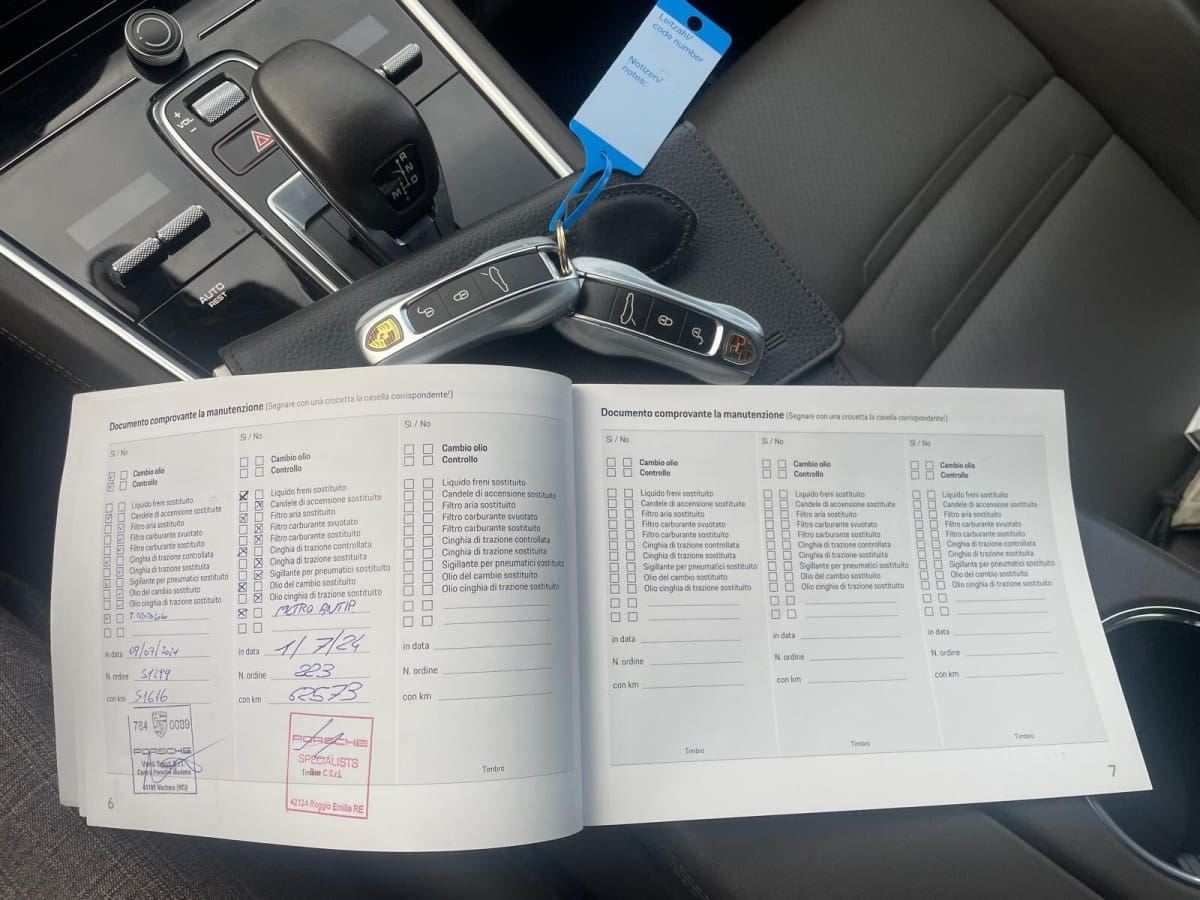 Leitzahl/
code number
Notizen/
notes:
+
VOL
-
R
N
D
M
+
AUTO
REST
Documento comprovante la manutenzione (Segnare con una crocetta la casella corrispondente!)
Sì / No
Cambio olio
Controllo
Liquido freni sostituito
Candele di accensione sostituite
Filtro aria sostituito
Filtro carburante svuotato
Filtro carburante sostituito
Cinghia di trazione controllata
Cinghia di trazione sostituita
Sigillante per pneumatici sostituito
Olio del cambio sostituito
Olio cinghia di trazione sostituito
in data 09/07/2021
N. ordine 51299
con km 51616
784 0039
PORSCHE
Centro Porsche Modena
6
Sì / No
Cambio olio
Controllo
Liquido freni sostituito
Candele di accensione sostituite
Filtro aria sostituito
Filtro carburante svuotato
Filtro carburante sostituito
Cinghia di trazione controllata
Cinghia di trazione sostituita
Sigillante per pneumatici sostituito
Olio del cambio sostituito
Olio cinghia di trazione sostituito
in data 1/7/24
N. ordine 223
con km 62573
PORSCHE
SPECIALISTS
42124 Reggio Emilia RE
Sì / No
Cambio olio
Controllo
Liquido freni sostituito
Candele di accensione sostituite
Filtro aria sostituito
Filtro carburante svuotato
Filtro carburante sostituito
Cinghia di trazione controllata
Cinghia di trazione sostituita
Sigillante per pneumatici sostituito
Olio del cambio sostituito
Olio cinghia di trazione sostituito
in data
N. ordine
con km
Timbro
Documento comprovante la manutenzione (Segnare con una crocetta la casella corrispondente!)
Sì / No
Cambio olio
Controllo
Liquido freni sostituito
Candele di accensione sostituite
Filtro aria sostituito
Filtro carburante svuotato
Filtro carburante sostituito
Cinghia di trazione controllata
Cinghia di trazione sostituita
Sigillante per pneumatici sostituito
Olio del cambio sostituito
Olio cinghia di trazione sostituito
in data
N. ordine
con km
Timbro
Sì / No
Cambio olio
Controllo
Liquido freni sostituito
Candele di accensione sostituite
Filtro aria sostituito
Filtro carburante svuotato
Filtro carburante sostituito
Cinghia di trazione controllata
Cinghia di trazione sostituita
Sigillante per pneumatici sostituito
Olio del cambio sostituito
Olio cinghia di trazione sostituito
in data
N. ordine
con km
Timbro
Sì / No
Cambio olio
Controllo
Liquido freni sostituito
Candele di accensione sostituite
Filtro aria sostituito
Filtro carburante svuotato
Filtro carburante sostituito
Cinghia di trazione controllata
Cinghia di trazione sostituita
Sigillante per pneumatici sostituito
Olio del cambio sostituito
Olio cinghia di trazione sostituito
in data
N. ordine
con km
Timbro
7